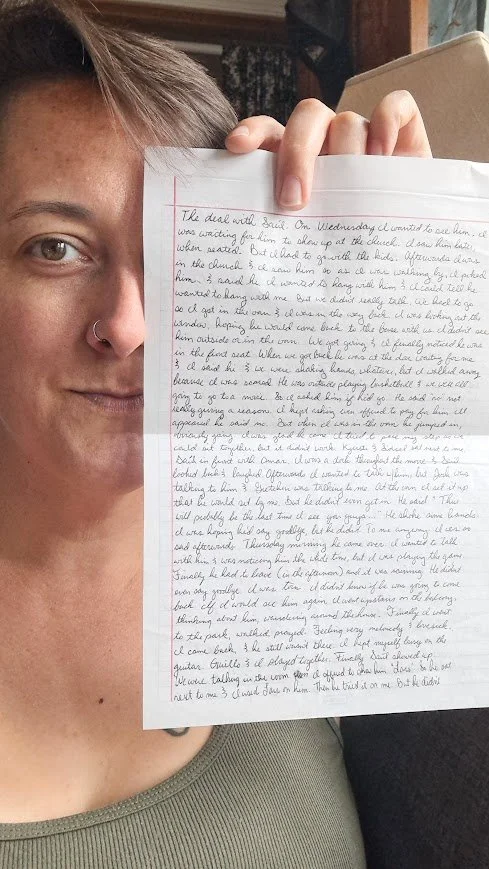 The deal with Saúl. On Wednesday I wanted to see him. I
was waiting for him to show up at the church. I saw him later
when seated. But I had to go with the kids. Afterwards I was
in the church & I saw him so as I was walking by, I poked
him. & said hi. I wanted to hang with him & I could tell he
wanted to hang with me. But we didn't really talk. We had to go
so I got in the van & I was in the very back. I was looking out the
window, hoping he would come back to the base with us. I didn't see
him outside or in the van. We got going & I finally noticed he was
in the front seat. When we got back he was at the door waiting for me
& I said hi & we were shaking hands, whatever, but I walked away
because I was scared. He was outside playing basketball & we were all
going to go to a movie. So I asked him if he'd go. He said no not
really giving a reason. I kept asking even offered to pay for him. It
appeared he said no. But when I was in the van he jumped in,
obviously going. I was glad he came. I tried to pace my step so we
could sit together, but it didn't work. & sat next to me
Saúl in front with Omar. I was a dork throughout the movie & Saúl
looked back & laughed. Afterwards I wanted to talk w/him, but Josh was
talking to him & Gretchen was talking to me. At the van I set it up
that he would sit by me. But he didn't even get in. He said "This
will probably be the last time I see you guys..." He shook some hands
I was hoping he'd say goodbye, but he didn't. To me anyway. I was so
sad afterwards. Thursday morning he came over. I wanted to talk
with him & was noticing him the whole time, but I was playing the game
Finally he had to leave (in the afternoon) and it was raining. He didn't
even say goodbye. I was torn. I didn't know if he was going to come
back. If I would see him again. I went upstairs on the balcony,
thinking about him, wandering around the house. Finally I went
to the park, walked prayed. Feeling very melancholy & lovesick.
I came back, & he still wasn't there. I kept myself busy on the
guitar. & I played together. Finally Saúl showed up.
We were talking in the room I offered to show him 'Lars'. So he sat
next to me & I used Lars on him. Then he tried it on me. But he didn't